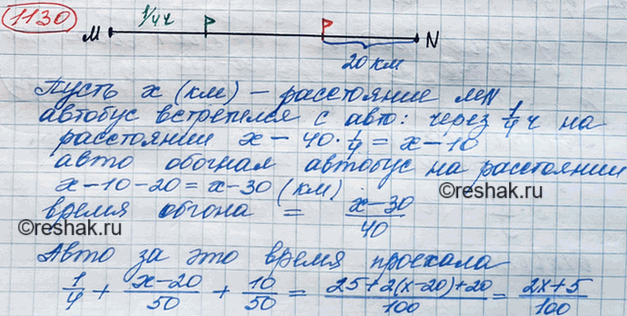 1130
1/4 ч
M P P N
20 км
Пусть x (км) – расстояние MN
автобус встретился с авто: через 1/4 ч на
расстоянии x – 40 · 1/4 = x – 10
авто обогнал автобус на расстоянии
x – 10 – 20 = x – 30 (км)
©reshak.ru
время обгона = x – 30 / 40
©reshak.ru
Авто за это время проехала
1/4 + x – 20 / 50 + 10/50 = 25 + 2(x – 20) + 20 / 100 = 2x + 5 / 100